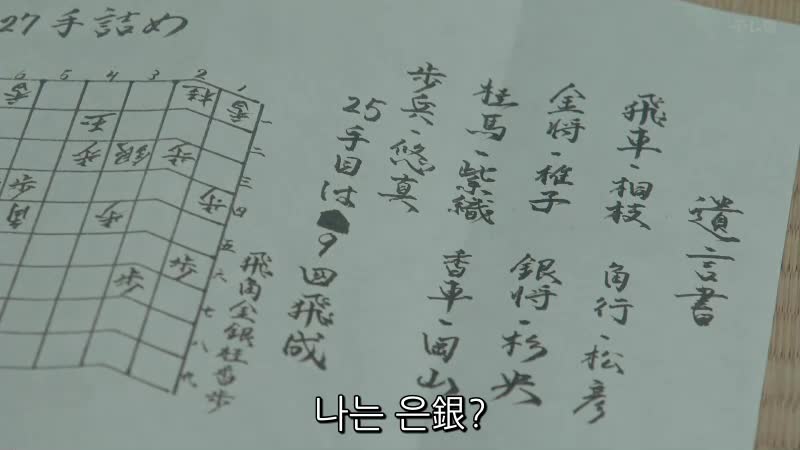 遺言書
飛車・相枝 角行・松彦
金将・椎子 銀将・杉央
桂馬・紫織 香車・岡山
歩兵・悠真
25手目は☗9四飛成
27手詰め
6 5 4 3 2 1
香 桂 香 一
玉 二
歩 銀 歩 三
歩 歩 四
角 歩 五
歩 歩 六
七
八
九
飛角金銀桂香歩
나는 은銀?